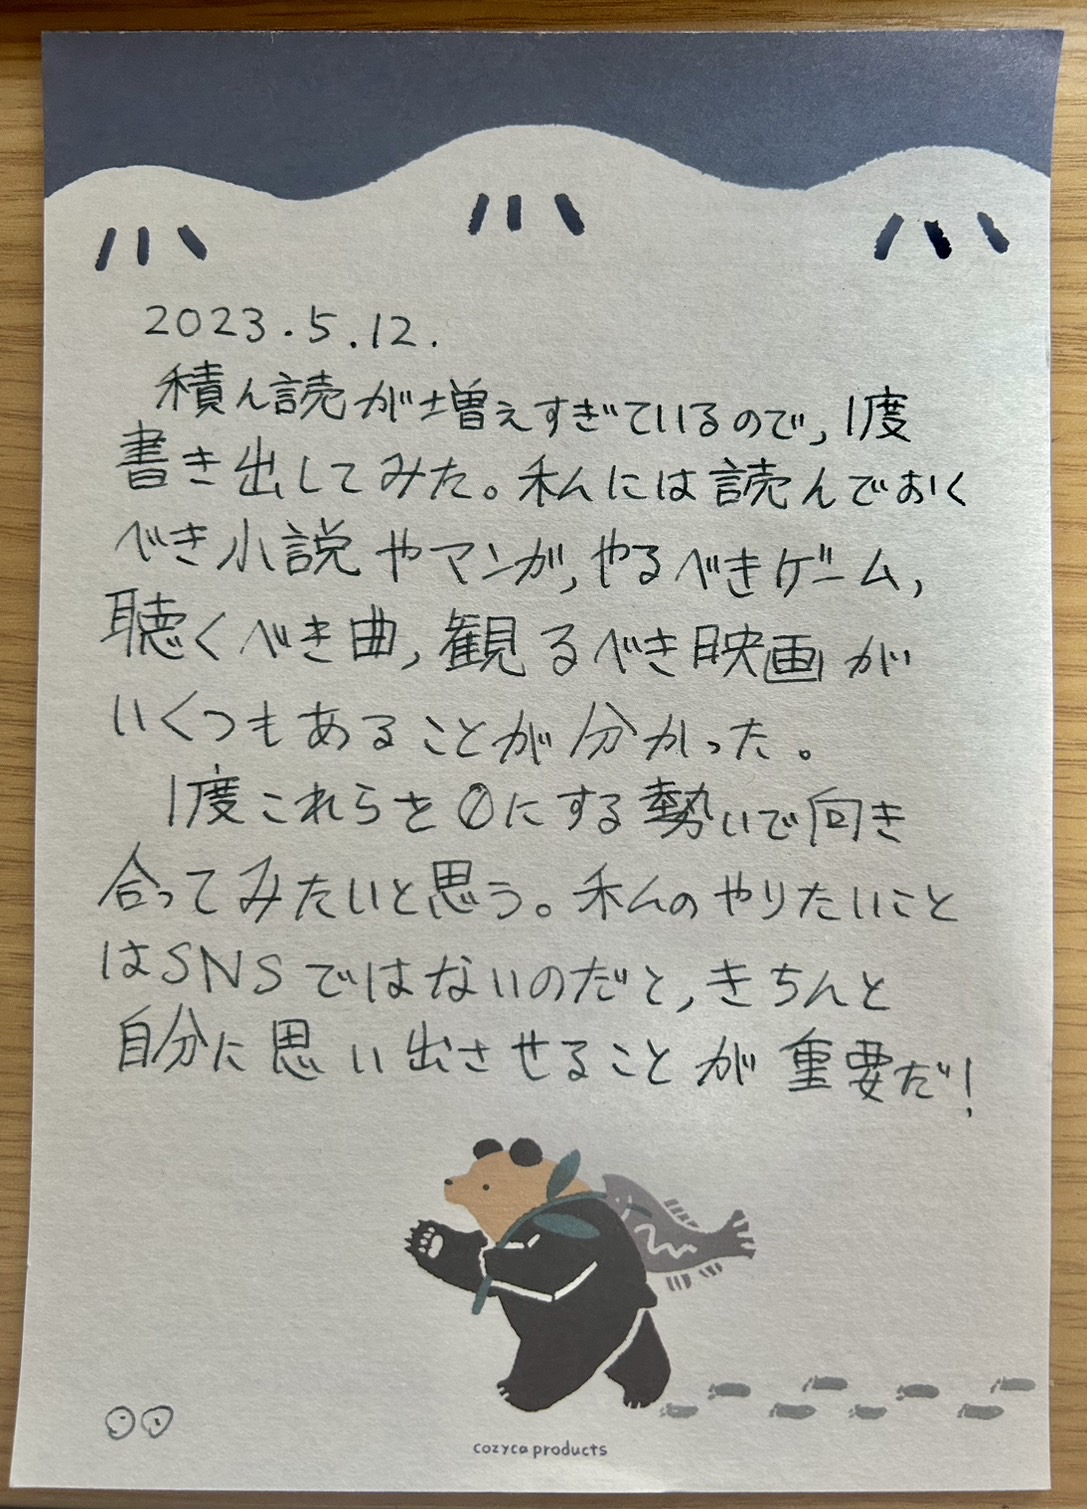 2023.5.12.
積ん読が増えすぎているので,1度
書き出してみた。私には読んでおく
べき小説やマンガ,やるべきゲーム,
聴くべき曲,観るべき映画が
いくつもあることが分かった。
1度これらを0にする勢いで向き
合ってみたいと思う。私のやりたいこと
はSNSではないのだと,きちんと
自分に思い出させることが重要だ!
cozyca products